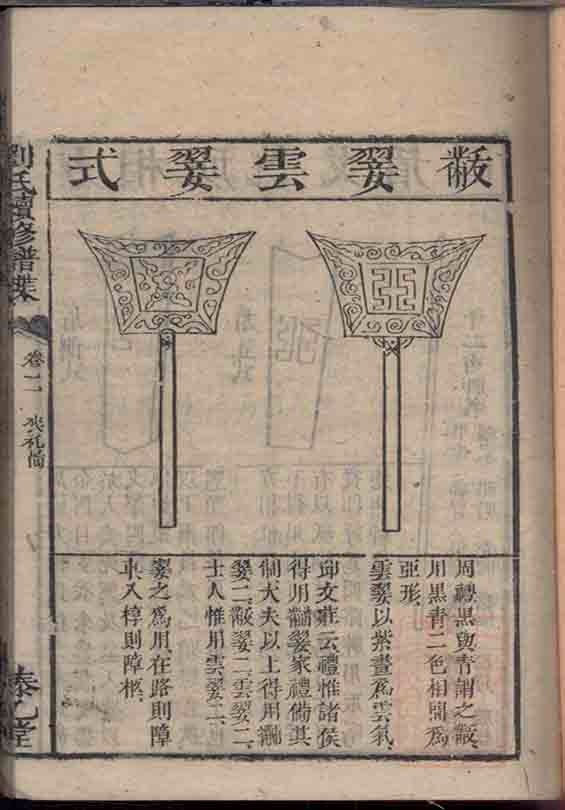 黻翣雲翣式
周禮黑與青謂之黻
用黑青二色相間爲
亞形
雲翣以紫畫爲雲氣
邱文莊云禮惟諸侯
得用黼翣家禮備其
制大夫以上得用黼
翣二黻翣二雲翣二
士人惟用雲翣二
翣之爲用在路則障
車入椁則障柩
劉氏續修譜牒
卷二
喪禮